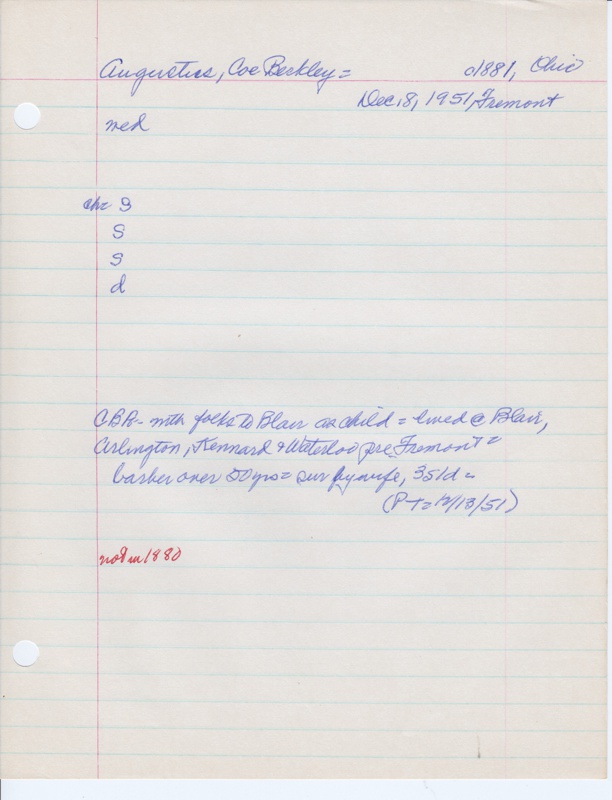 Augustus, Coe Beckley = o1881, Ohio
Dec. 8, 1951, Fremont
wed
chr S
S
S
d
CBA - with folks to Blair as child = lived @ Blair,
Arlington, Kennard & Waterloo pre Fremont =
barber over 50 yrs = sur by wife, 3s1d =
(PT = 12/13/51)
not in 1880